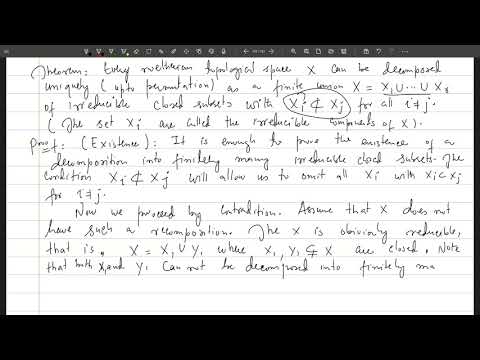 Theorem: Every noetherian topological space X can be decomposed
uniquely (up to permutation) as a finite union X = X₁ ∪ ··· ∪ Xₛ
of irreducible closed subsets with Xᵢ ⊄ Xⱼ for all i ≠ j.
(The set Xᵢ are called the irreducible components of X).
Proof: (Existence): It is enough to prove the existence of a
decomposition into finitely many irreducible closed subsets. The
condition Xᵢ ⊄ Xⱼ will allow us to omit all Xᵢ with Xᵢ ⊂ Xⱼ
for i ≠ j.
Now we proceed by contradition. Assume that X does not
have such a recomposition. The X is obiviously reducible,
that is, X = X₁ ∪ Y₁ where X₁, Y₁ ⊊ X are closed. Note
that both X₁ and Y₁ Can not be decomposed into finitely ma